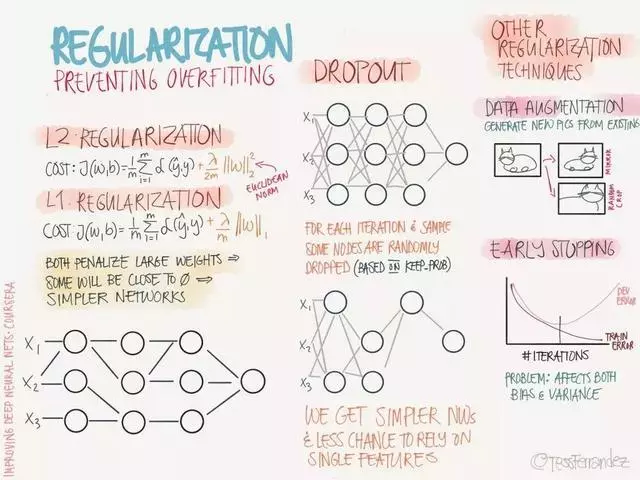 REGULARIZATION
PREVENTING OVERFITTING
L2 REGULARIZATION
COST: J(w,b)=1/m m∑i=1 L(ŷ,y)+ λ/2m ||w||²₂
EUCLIDEAN
NORM
L1 REGULARIZATION
COST: J(w,b)=1/m m∑i=1 L(ŷ,y)+ λ/m ||w||₁
BOTH PENALIZE LARGE WEIGHTS ⇒
SOME WILL BE CLOSE TO 0 ⇒
SIMPLER NETWORKS
X₁
X₂
X₃
IMPROVING DEEP NEURAL NETS · COURSERA
DROPOUT
X₁
X₂
X₃
FOR EACH ITERATION & SAMPLE
SOME NODES ARE RANDOMLY
DROPPED (BASED ON KEEP-PROB)
X₁
X₂
X₃
WE GET SIMPLER NWs
& LESS CHANCE TO RELY ON
SINGLE FEATURES
OTHER
REGULARIZATION
TECHNIQUES
DATA AUGMENTATION
GENERATE NEW PICS FROM EXISTING
MIRROR
RANDOM
CROP
EARLY STOPPING
DEV
ERROR
TRAIN
ERROR
# ITERATIONS
PROBLEM: AFFECTS BOTH
BIAS & VARIANCE
©TessFerrandez